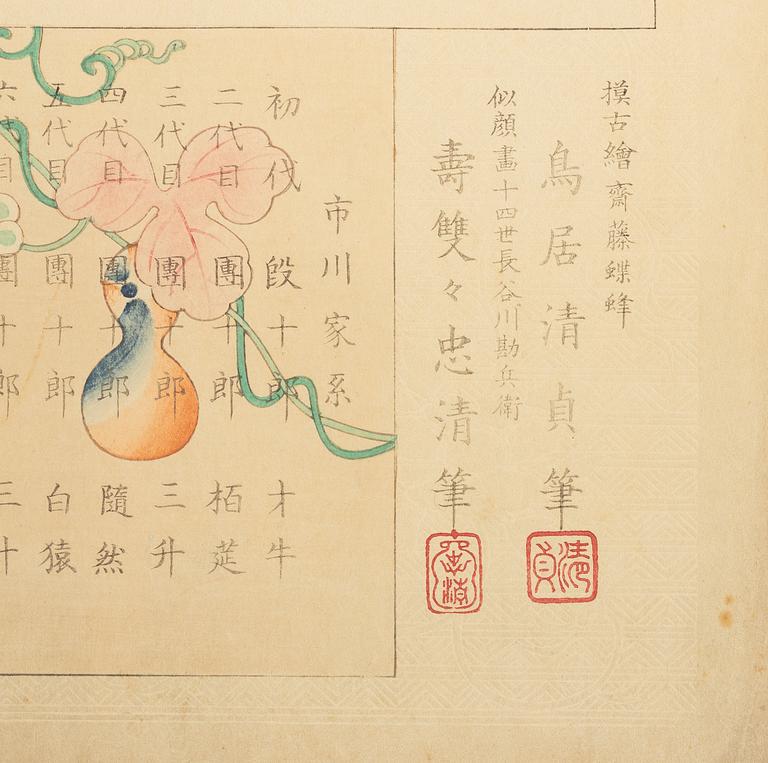 摸古繪齋藤蝶蜂
鳥居清貞筆
清貞
似顔畫十四世長谷川勘兵衛
壽雙々忠清筆
市川家系
初代段十郎才牛
二代目團十郎栢莚
三代目團十郎三升
四代目團十郎隨然
五代目團十郎白猿
六代目團十郎三升